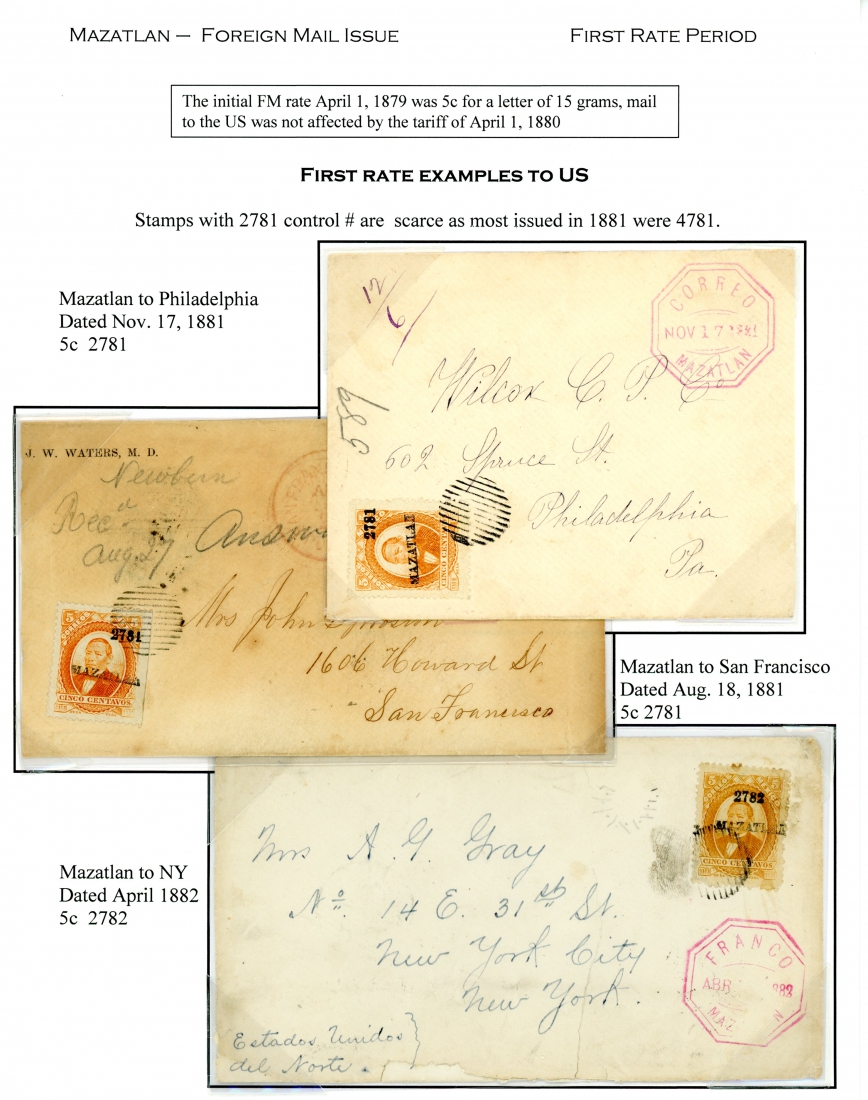 MAZATLAN – FOREIGN MAIL ISSUE
FIRST RATE PERIOD
The initial FM rate April 1, 1879 was 5c for a letter of 15 grams, mail
to the US was not affected by the tariff of April 1, 1880
FIRST RATE EXAMPLES TO US
Stamps with 2781 control # are scarce as most issued in 1881 were 4781.
Mazatlan to Philadelphia
Dated Nov. 17, 1881
5c 2781
12/6/
589
CORREO
NOV 17 1881
MAZATLAN
Wilcox C. P. Co
602 Spruce St.
Philadelphia
Pa.
2781
MAZATLAN
5
CINCO CENTAVOS
J. W. WATERS, M. D.
Newbern
Rec'd
Aug 27
FRAN
Mrs John
1606 Howard St
San Francisco
5 5
2781
MAZATLAN
CINCO CENTAVOS
Mazatlan to San Francisco
Dated Aug. 18, 1881
5c 2781
Mazatlan to NY
Dated April 1882
5c 2782
2782
MAZATLAN
CINCO CENTAVOS
Mrs A. G. Gray
No. 14 E. 31st St.
New York City
New York.
FRANCO
ABR 882
MAZ N
Estados Unidos
del Norte.